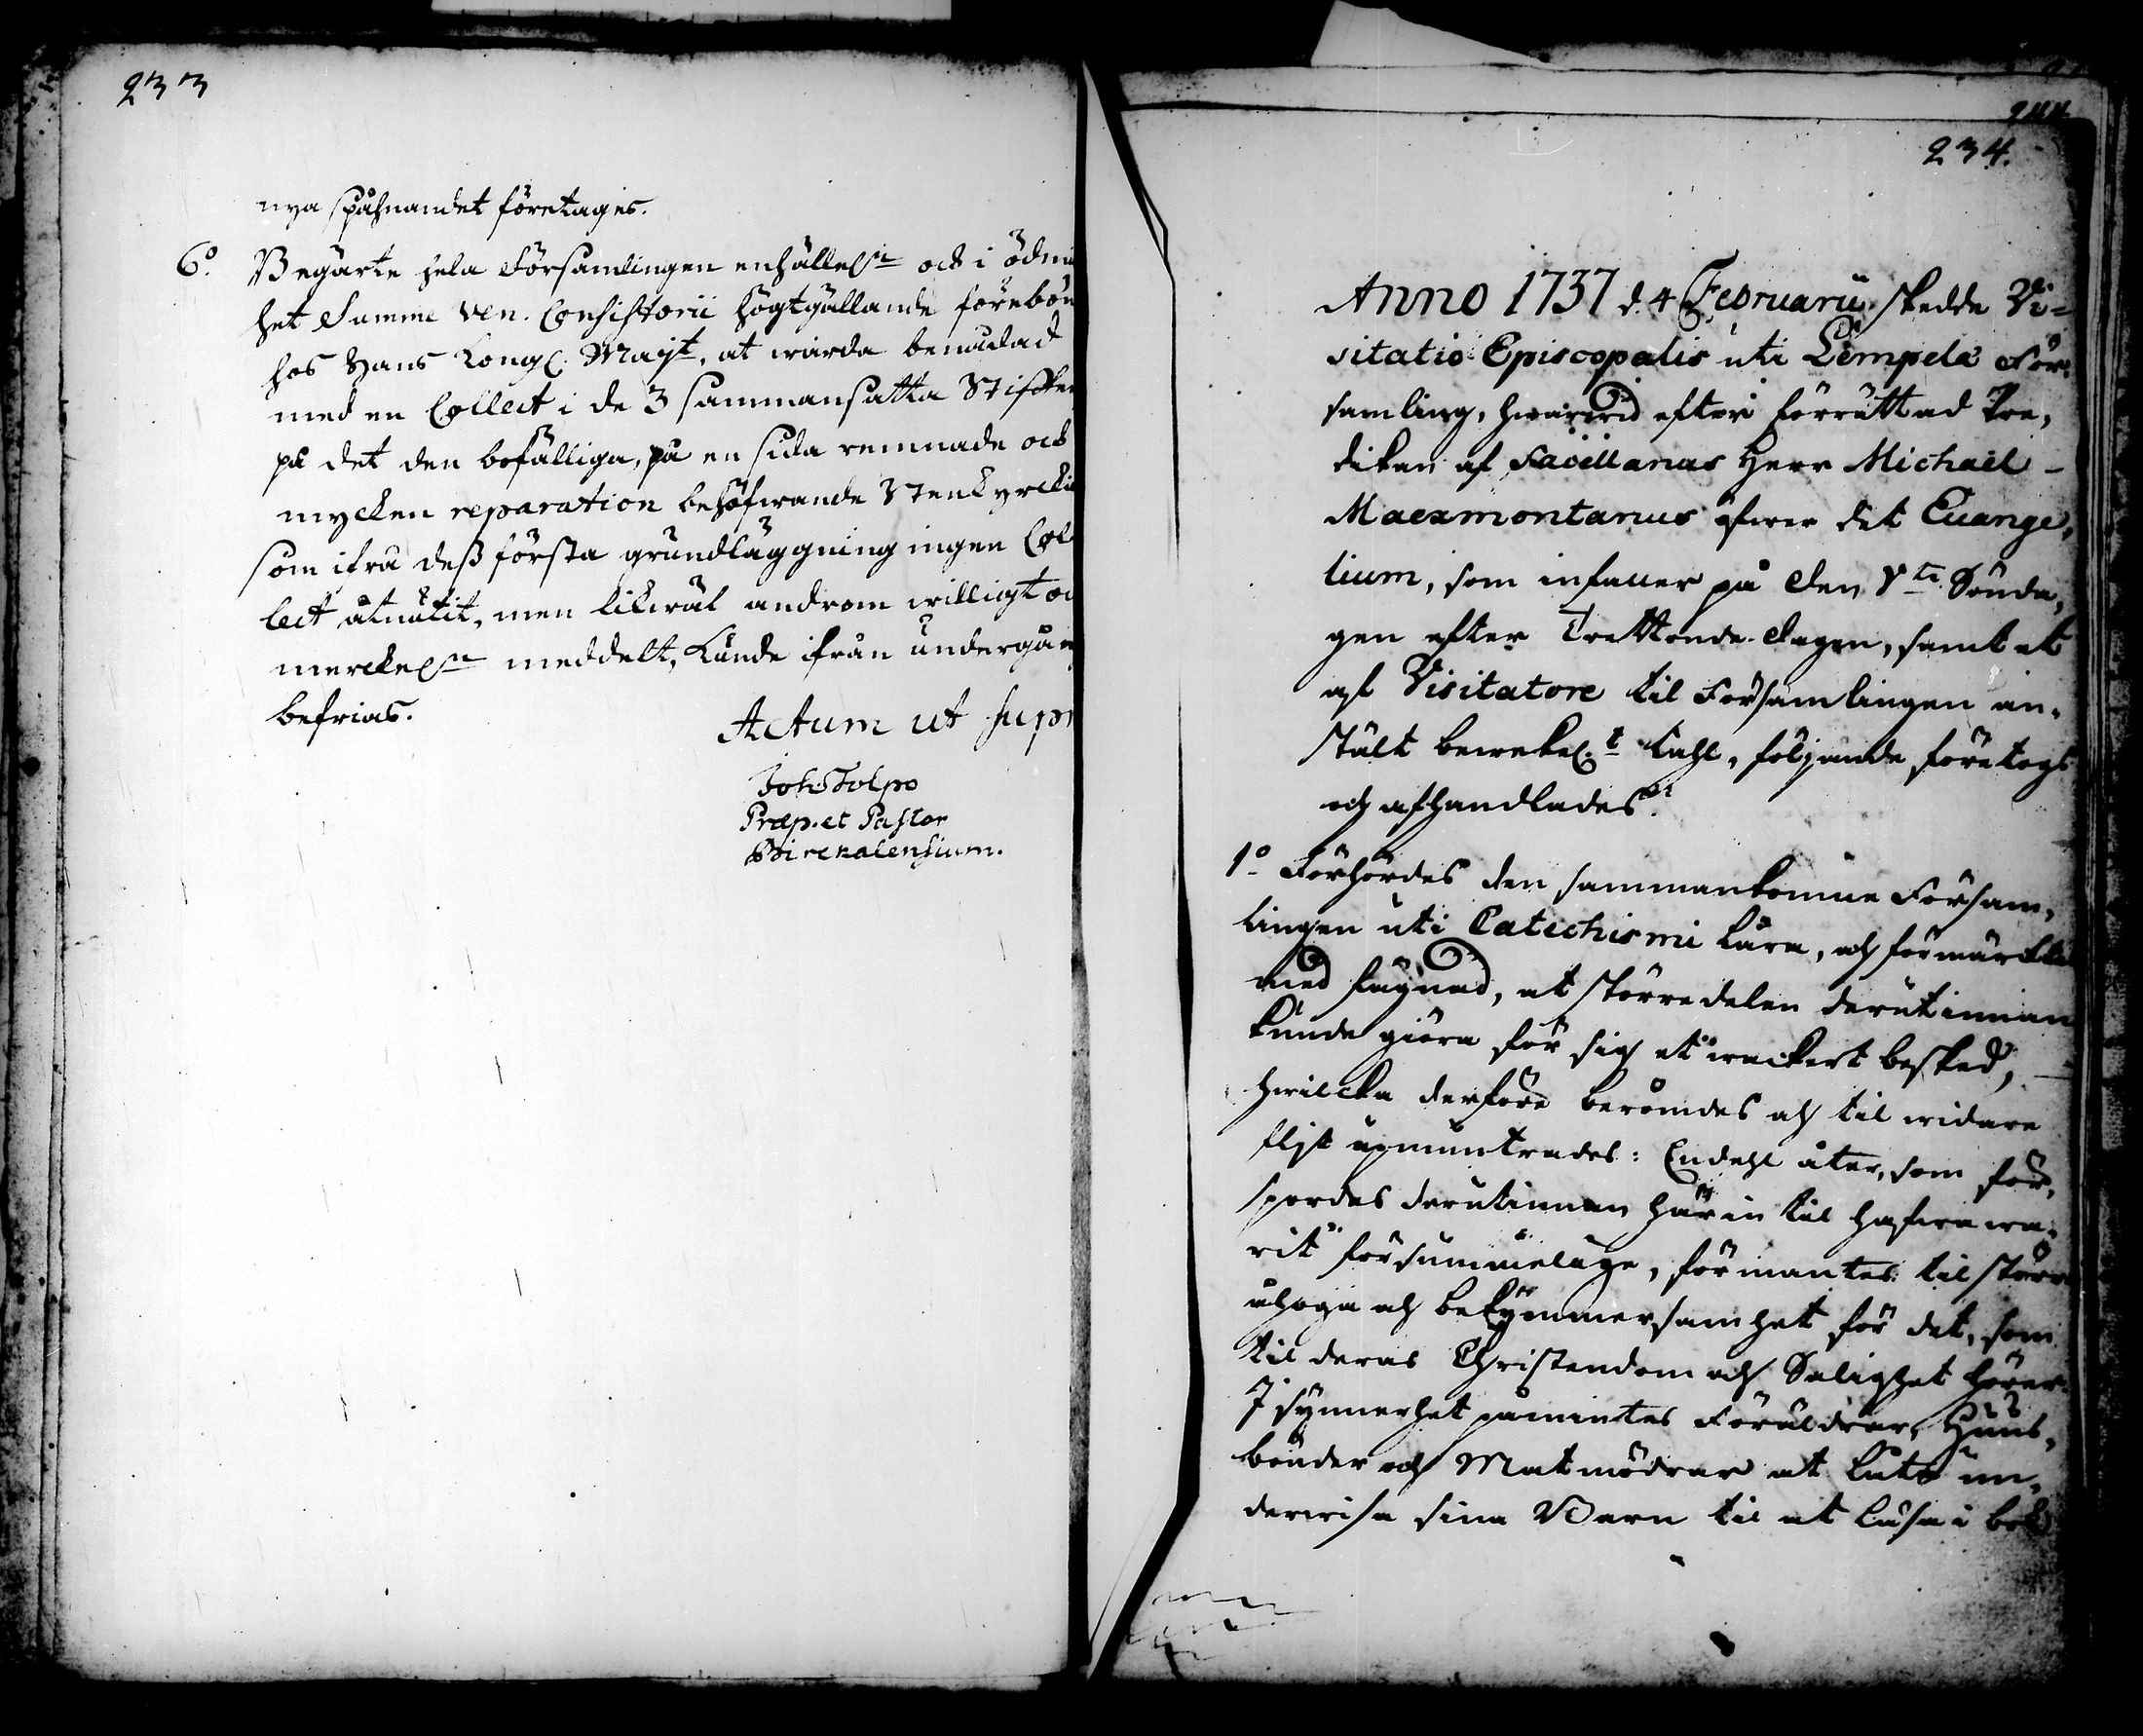 233
nya spåhnandet företages.
6º. Begärte hela Församlingen enhälle:n och i ödmiu
het Samme ven. Consistorii högtgällande förebön
hos Hans Kongl. Mayt, at warda benådad
med en Collect i de 3 sammansatta Stifften
på det den bofälliga, på en sida remnade och
mycken reparation behöfwande Stenkyrckia
som ifrå dess första grundläggning ingen Col-
lect åtnutit, men likwäl androm willigt oc
mercke:n meddelt, kunde ifrån undergån
befrias.
Actum ut supr
Joh. Tolpo
Præp. et Pastor
Birckalensium.
244
234.
Anno 1737 d. 4 Februarii skedde Vi=
sitatio Episcopalis uti Lempelä För=
samling, hwarwid efter förrättad Pre,
dikan af Sacellanus Herr Michaël -
Maexmontanus öfwer det Euange,
lium, som infaller på den V:te Sönda,
gen efter Trettonde-dagen, samt et
af Visitatore til Församlingen an-
stält bewekel:t tahl, följande företogs
och afhandlades.
1º Förhördes den sammankomne Försam,
lingen uti Catechismi lära, och förmärcktes
med fägnad, at större delen derutinnan
kunde giöra för sig et wackert besked,
hwilcka derföre berömdes och til widare
flit upmuntrades: Endehl åter, som för,
spordes derutinnan härin til hafwa wa,
rit försummelige, förmantes til större
åhoga och bekymmersamhet för det, som
til deras Christendom och Salighet hörer.
I synnerhet påmintes Föräldrar, Huus,
bönder och Matmödrar at låta un,
derwisa sina Barn til at läsa i bok